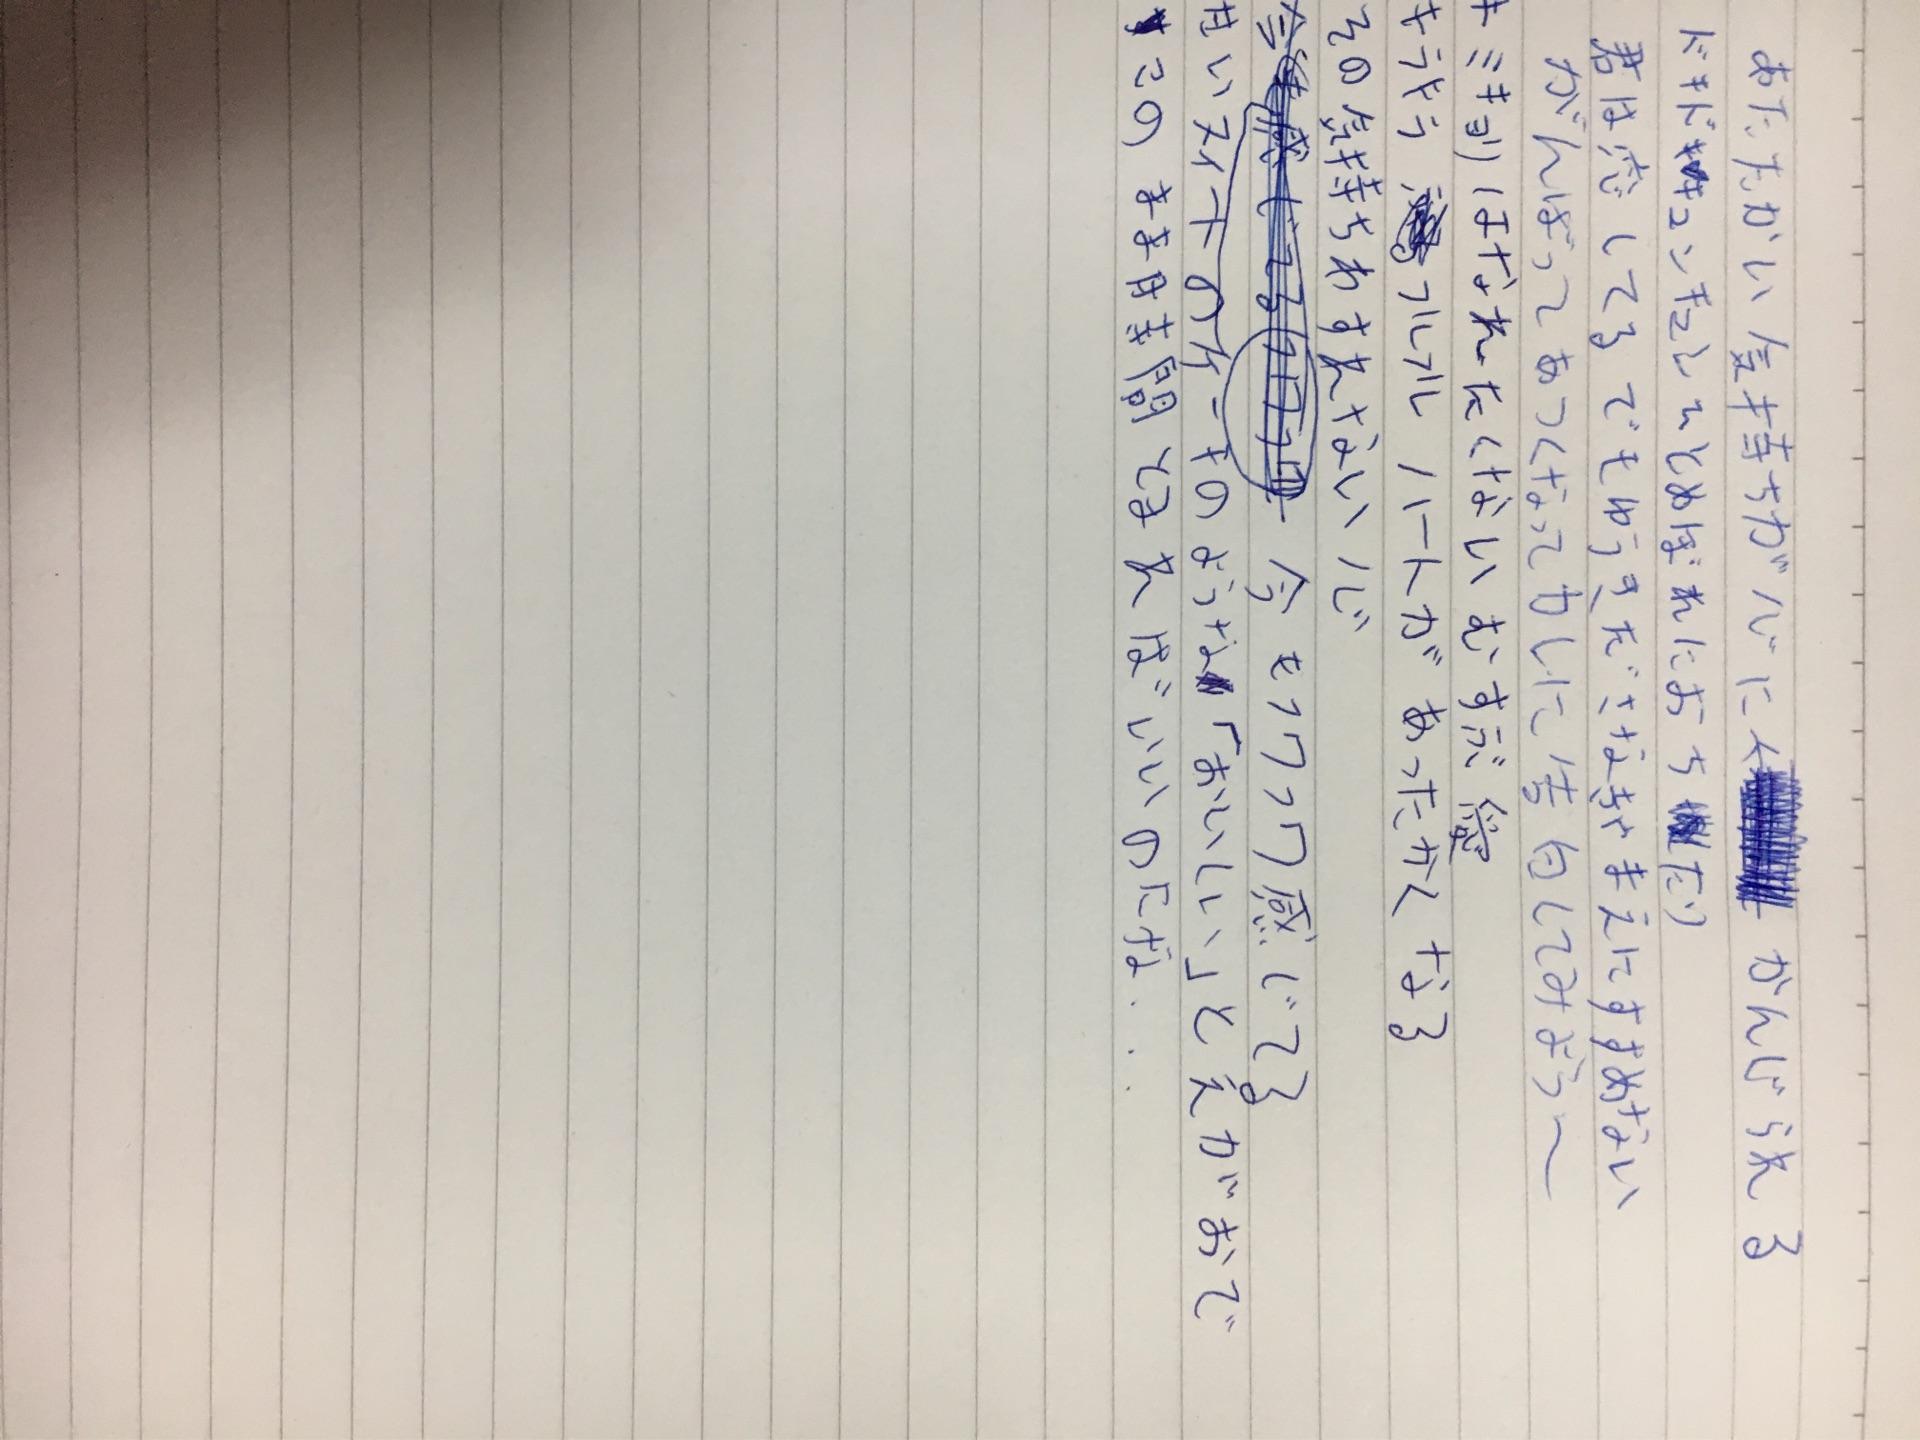 あたたかい気持ちが心に かんじられる
ドキドキュンキュとひとめぼれにおち たり
君は恋してる でもゆうきださなきゃまえにすすめない
がんばってあつくなってカレに告白してみよう〜
キミョリはなれたくない むすぶ愛
キラキラ フルフル ハートが あったかく なる
その気持ちわすれない心
今 もワクワク感じてる
甘いスイーツのケーキのような「おいしい」とえがおで
この まま時間 とまれ ばいいのにな...